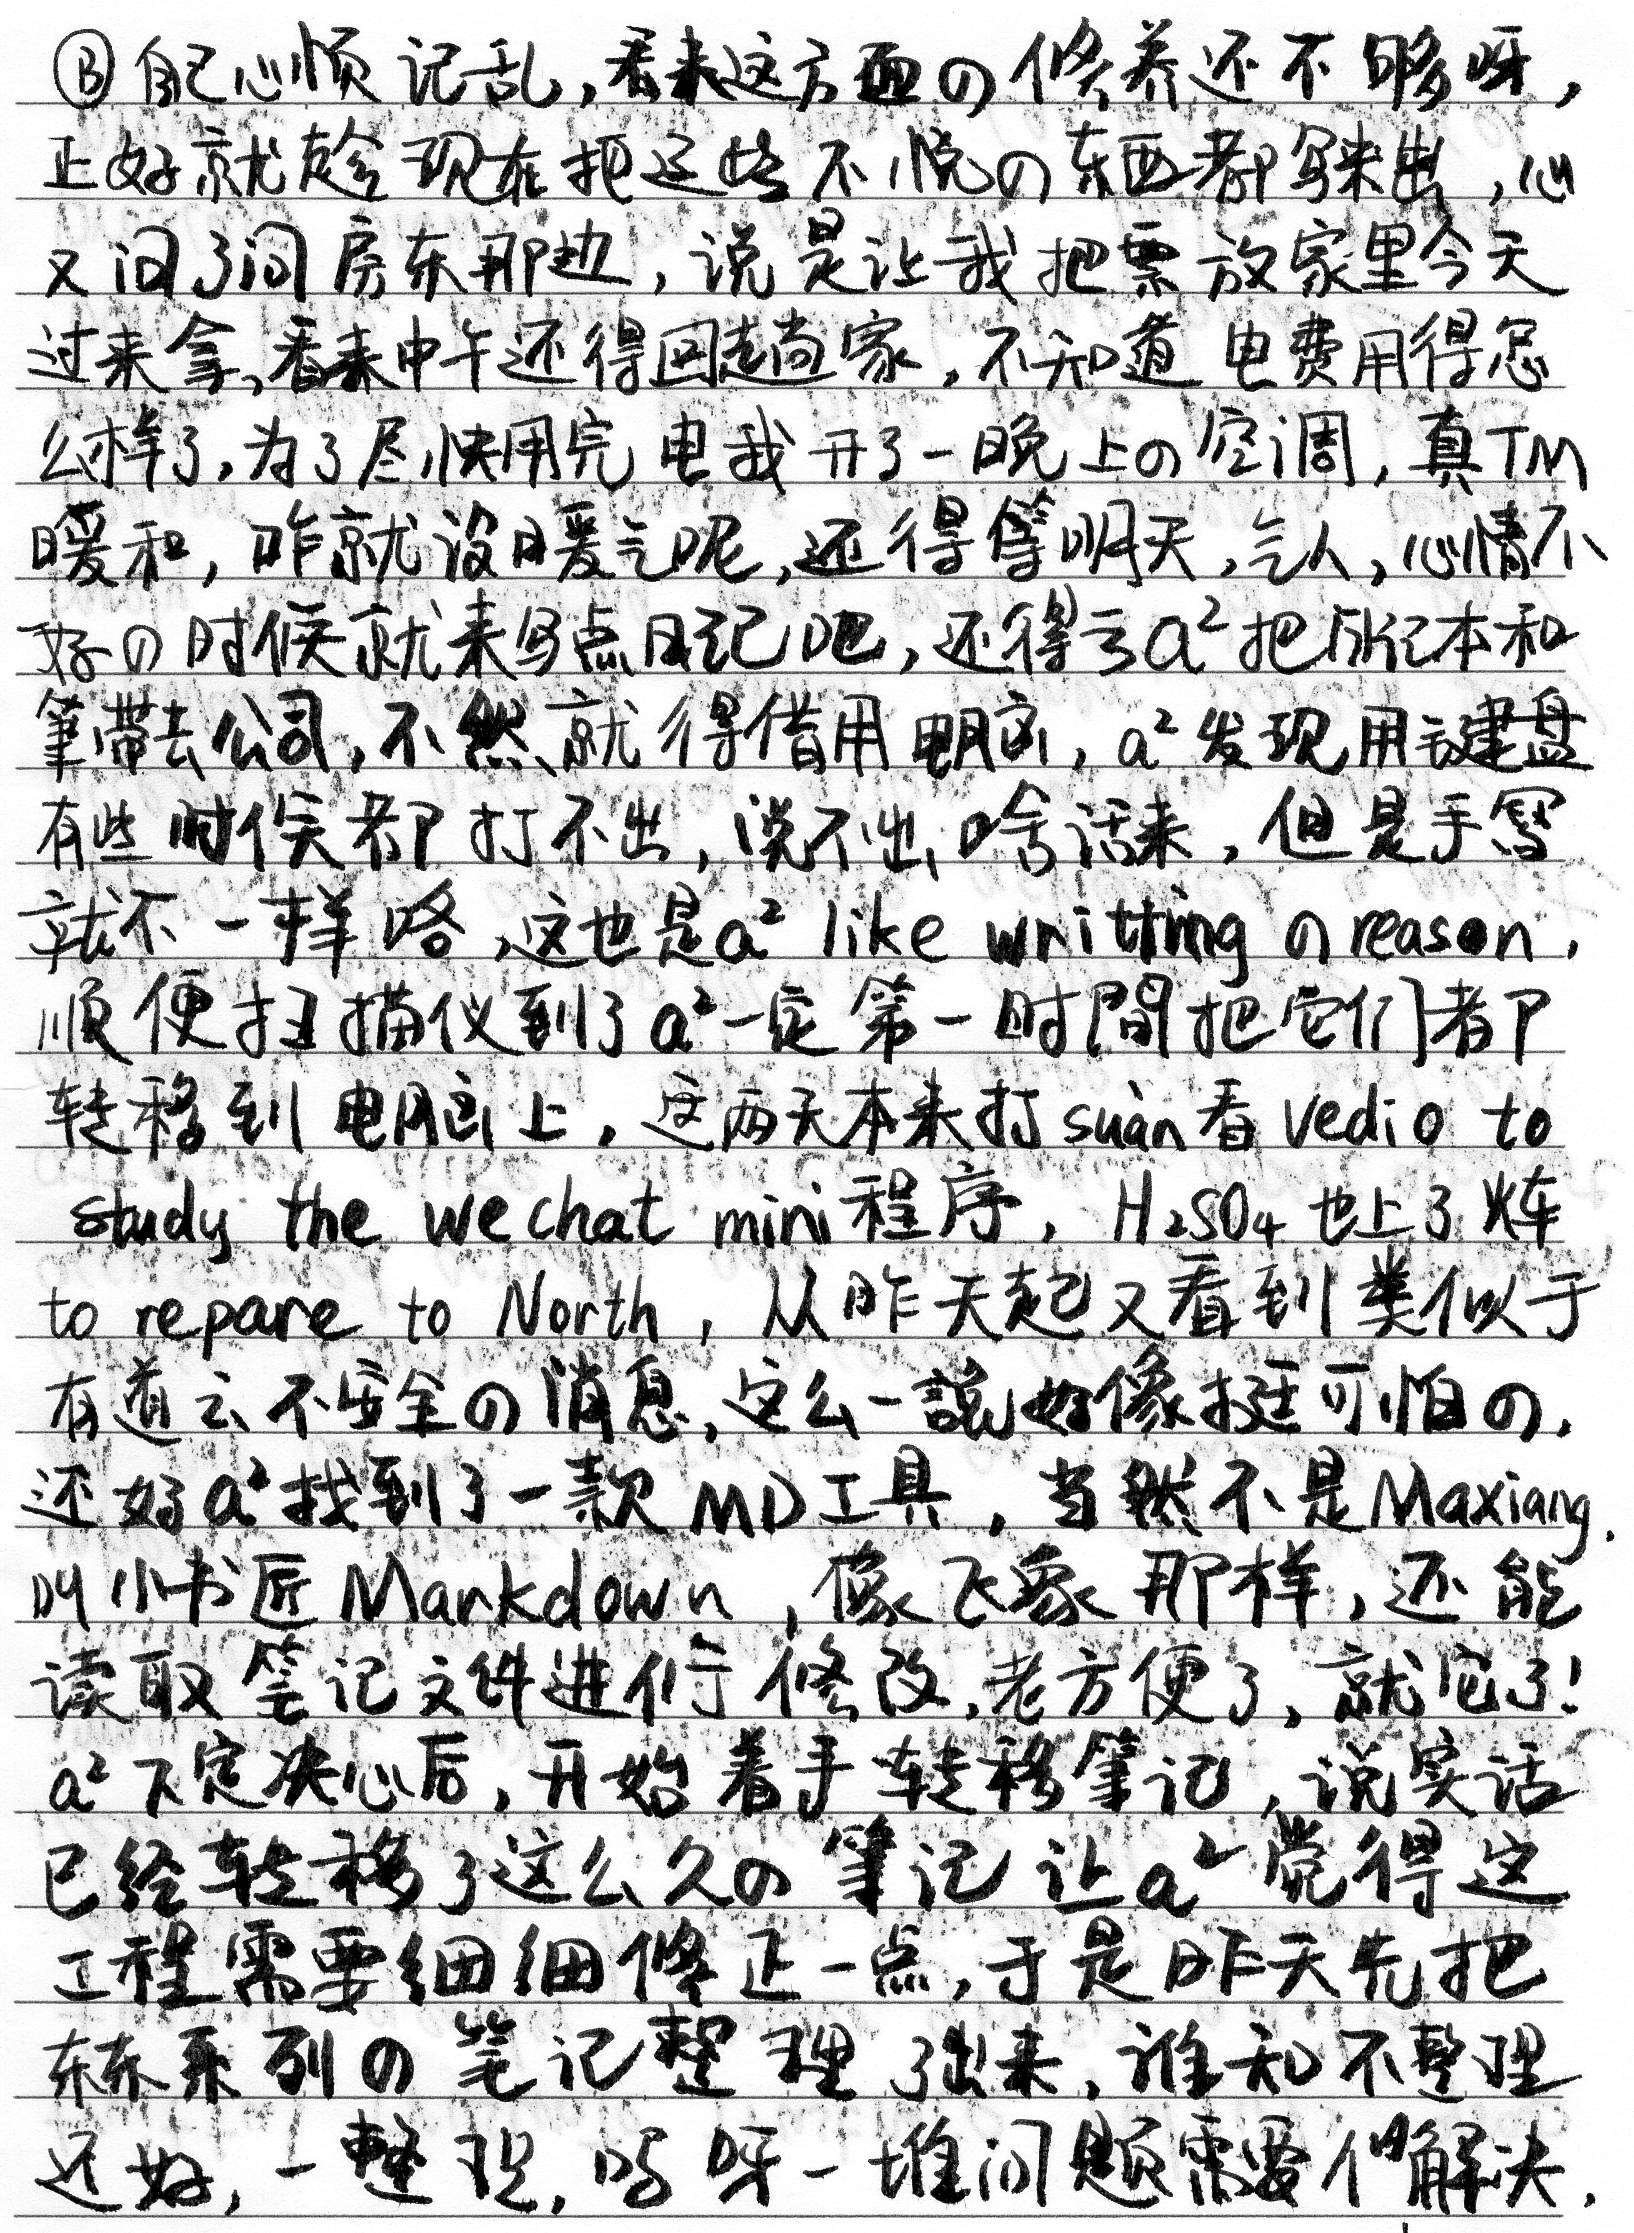 Ⓑ自己心烦记乱,看来这方面の修养还不够呀,
正好就趁现在把这些不悦の东西都写来出,心
又问了问房东那边,说是让我把票放家里今天
过来拿,看来中午还得回趟家,不知道电费用得怎
么样了,为了尽快用完电我开了一晚上の空调,真TM
暖和,咋就没暖气呢,还得等明天,气人,心情不
好の时候就来写点日记吧,还得云a²把所记本和
筆带去公司,不然就得借用电脑,a²发现用键盘
有些时候都打不出,说不出啥话来,但是手寫
就不一样咯,这也是a² like writting の reason,
顺便扫描仪到了a²一定第一时間把它们都
转移到电脑上,这两天本来打suàn看 Vedio to
study the wechat mini程序,H₂SO₄也上了火车
to repare to North,从昨天起又看到类似于
有道云不安全の消息,这么一說好像挺可怕の,
还好a²找到了一款MD工具,当然不是Maxiang.
叫小书匠Markdown,像飞象那样,还能
读取笔记文件进行修改,老方便了,就它了!
a²下定决心后,开始着手转移筆记,说实话
已经转移了这么久の筆记让a²觉得这
工程需要细细修正一点,于是昨天先把
赫系列の笔记整理了出来,谁知不整理
还好,一整理,哎呀一堆问题需要解决,